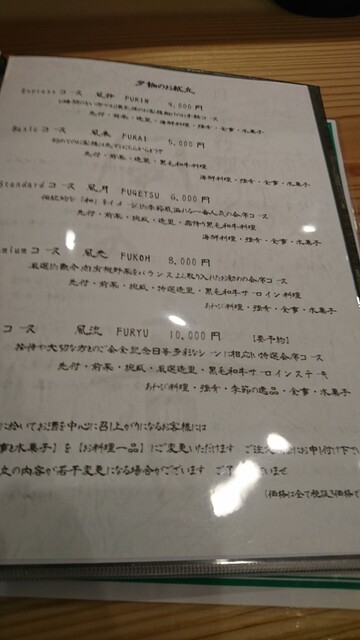 夕餉のお献立
Express コース 風鈴 FURIN 4,000 円
先付・前菜・造里・海鮮料理・強肴・食事・水菓子
Basic コース 風来 FURAI 5,000 円
先付・前菜・造里・黒毛和牛料理
海鮮料理・強肴・食事・水菓子
Standard コース 風月 FUGETSU 6,000 円
先付・前菜・椀盛・造里・霜降り黒毛和牛料理
海鮮料理・強肴・食事・水菓子
mium コース 風光 FUKOH 8,000 円
先付・前菜・椀盛・特選造里・黒毛和牛サーロイン料理
あわび料理・強肴・食事・水菓子
コース 風流 FURYU 10,000 円 【要予約】
接待や大切な方とのご会食記念日等多彩なシーンに相応しい特選会席コース
先付・前菜・椀盛・厳選造里・黒毛和牛サーロインステーキ
あわび料理・強肴・季節の逸品・食事・水菓子
に於いてお酒を中心に召し上がりになるお客様には
事と水菓子】を【お料理一品】にご変更いただけます ご注文時にお申し付け下
の内容が若干変更になる場合がございます
【価格は全て税抜き価格で